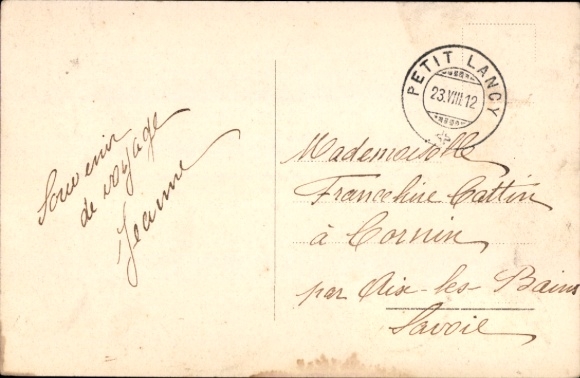 Souvenir
de voyage
Jeanne
PETIT LANCY
23.VIII.12
Mademoiselle
Franceline Cattin
à Cornin
par Aix-les-Bains
Savoie